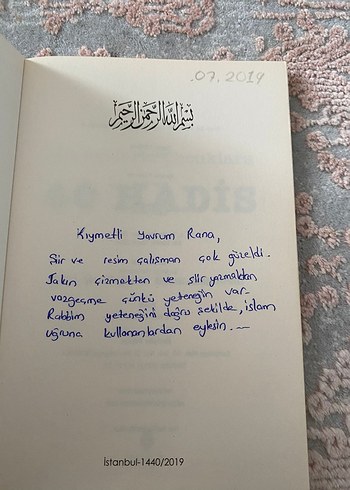 .07.2019
بسم الله الرحمن الرحيم
Kıymetli Yavrum Rana,
Şiir ve resim çalışman çok güzeldi.
Takın çizmekten ve şiir yazmaktan
vazgeçme çünkü yeteneğin var.
Rabbim yeteneğini doğru şekilde, islam
uğruna kullananlardan eylesin.
İstanbul-1440/2019